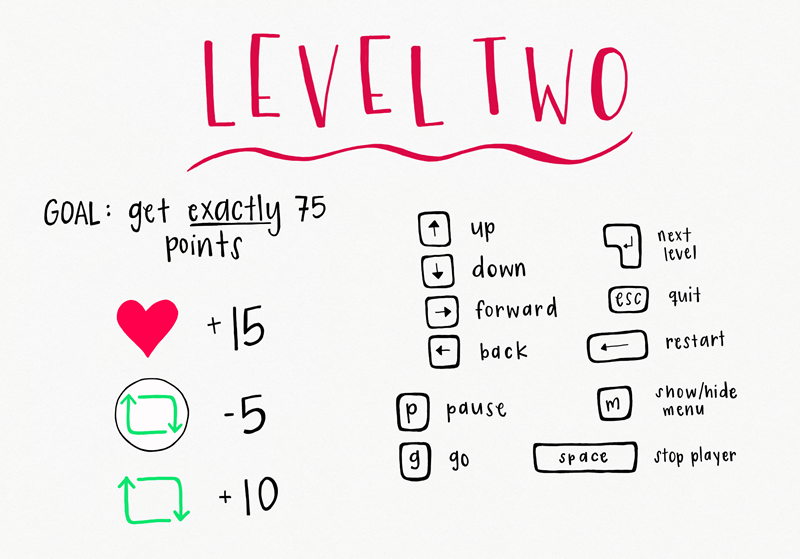 LEVEL TWO
GOAL: get exactly 75
points
+15
-5
+10
up
down
forward
back
p pause
g go
next
level
esc quit
restart
m show/hide
menu
space stop player